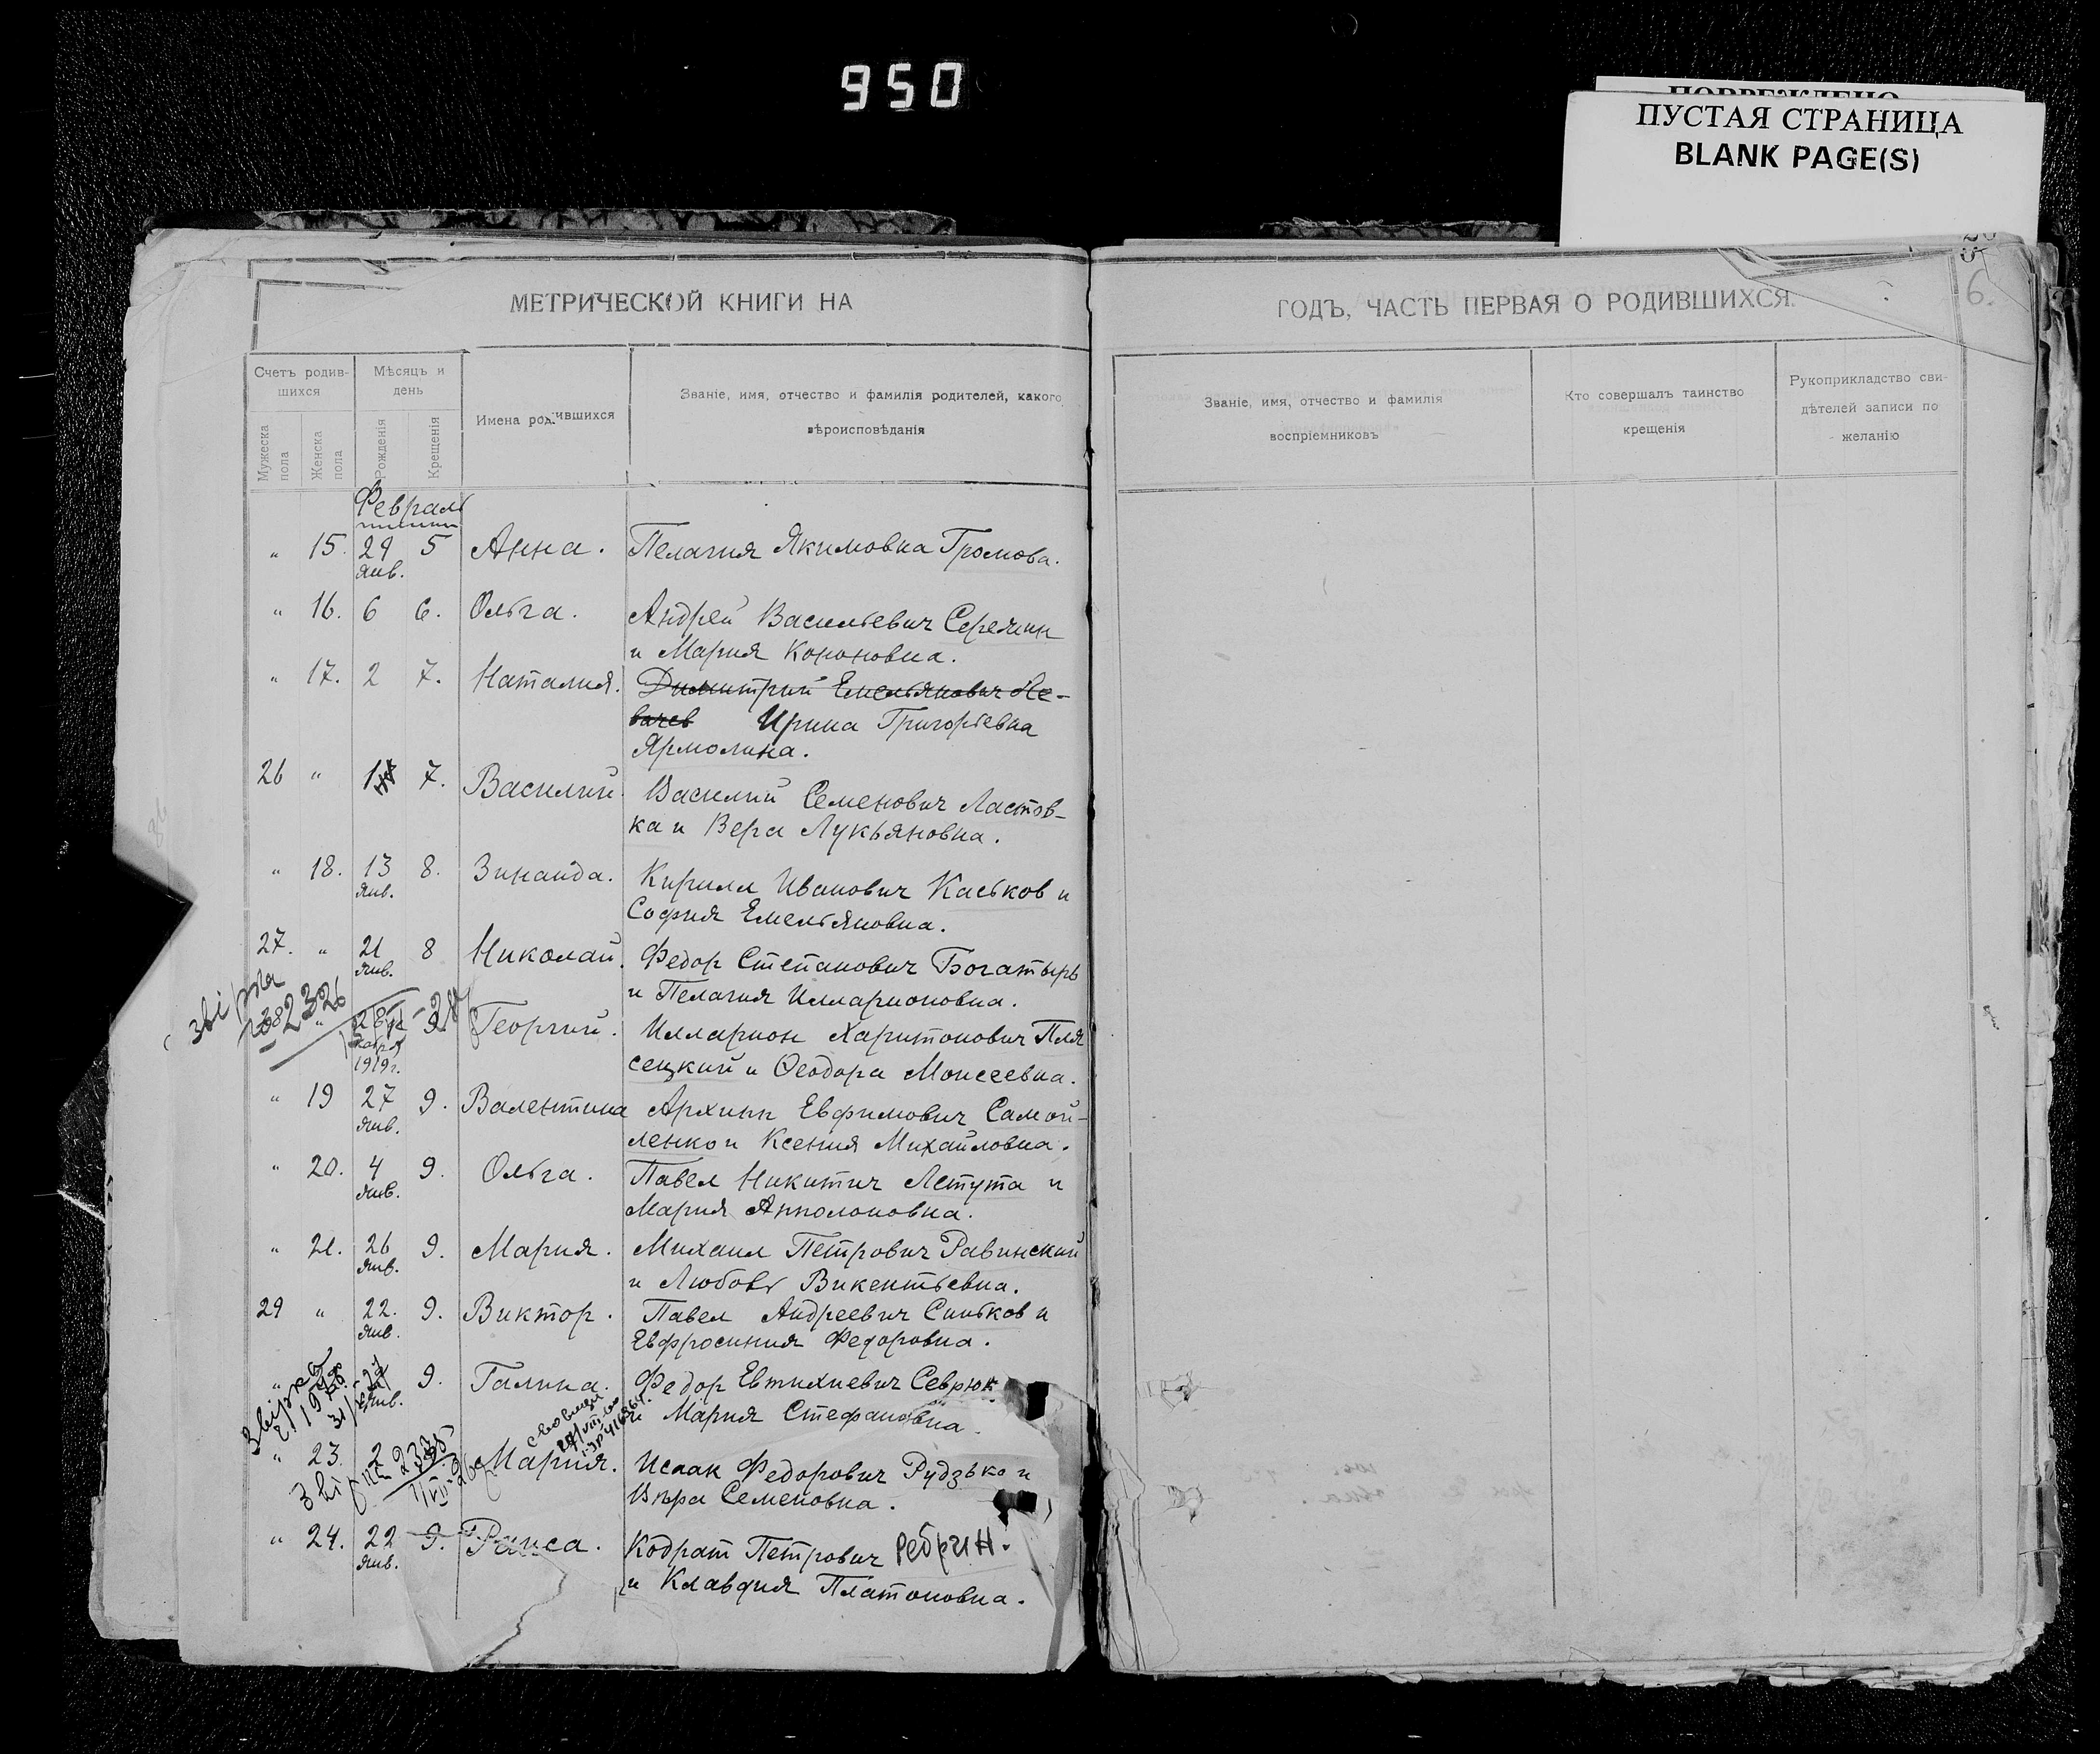 950
ПОВРЕЖДЕНО
ПУСТАЯ СТРАНИЦА
BLANK PAGE(S)
6.
МЕТРИЧЕСКОЙ КНИГИ НА
ГОДЪ, ЧАСТЬ ПЕРВАЯ О РОДИВШИХСЯ.
Счетъ родив-
шихся
Мѣсяцъ и
день
Мужеска
пола
Женска
пола
Рожденія
Крещенія
Имена родившихся
Званіе, имя, отчество и фамилія родителей, какого
вѣроисповѣданія
Званіе, имя, отчество и фамилія
воспріемниковъ
Кто совершалъ таинство
крещенія
Рукоприкладство сви-
дѣтелей записи по
желанію
Февраль
" 15. 29 5 Анна. Пелагия Якимовна Громова.
янв.
" 16. 6 6. Ольга. Андрей Васильевич
и Мария Кононовна.
" 17. 2 7. Наталия. Димитрий Емельянович Ле-
вачев Ирина Григорьевна
Ярмолина.
26 " 7. Василий. Василий Семенович Ластов-
ка и Вера Лукьяновна.
" 18. 13 8. Зинаида. Кирилл Иванович Каськов и
янв.
София Емельяновна.
27. " 21 8 Николай. Федор Степанович Богатырь
янв.
и Пелагия Илларионовна.
звірка
" 9. Георгий. Илларион Харитонович Пля
1919г.
сецкий и Феодора Моисеевна.
" 19 27 9. Валентина Архипп Евфимович Самой-
янв.
ленко и Ксения Михайловна.
" 20. 4 9. Ольга. Павел Никитич Летута и
янв.
Мария Апполоновна.
" 21. 26 9. Мария. Михаил Петрович Равинский
янв.
и Любовь Викентьевна.
29 " 22. 9. Виктор. Павел Андреевич Синьков и
янв.
Евфросиния Федоровна.
звірка
" 9. Галина. Федор Евтихиевич Севрюк
янв.
и Мария Стефановна
" 23. 2 Мария. Исаак Федорович Рудзько и
Вѣра Семеновна.
" 24. 22 9. Раиса. Кодрат Петрович Ребрин.
янв.
и Клавдия Платоновна.